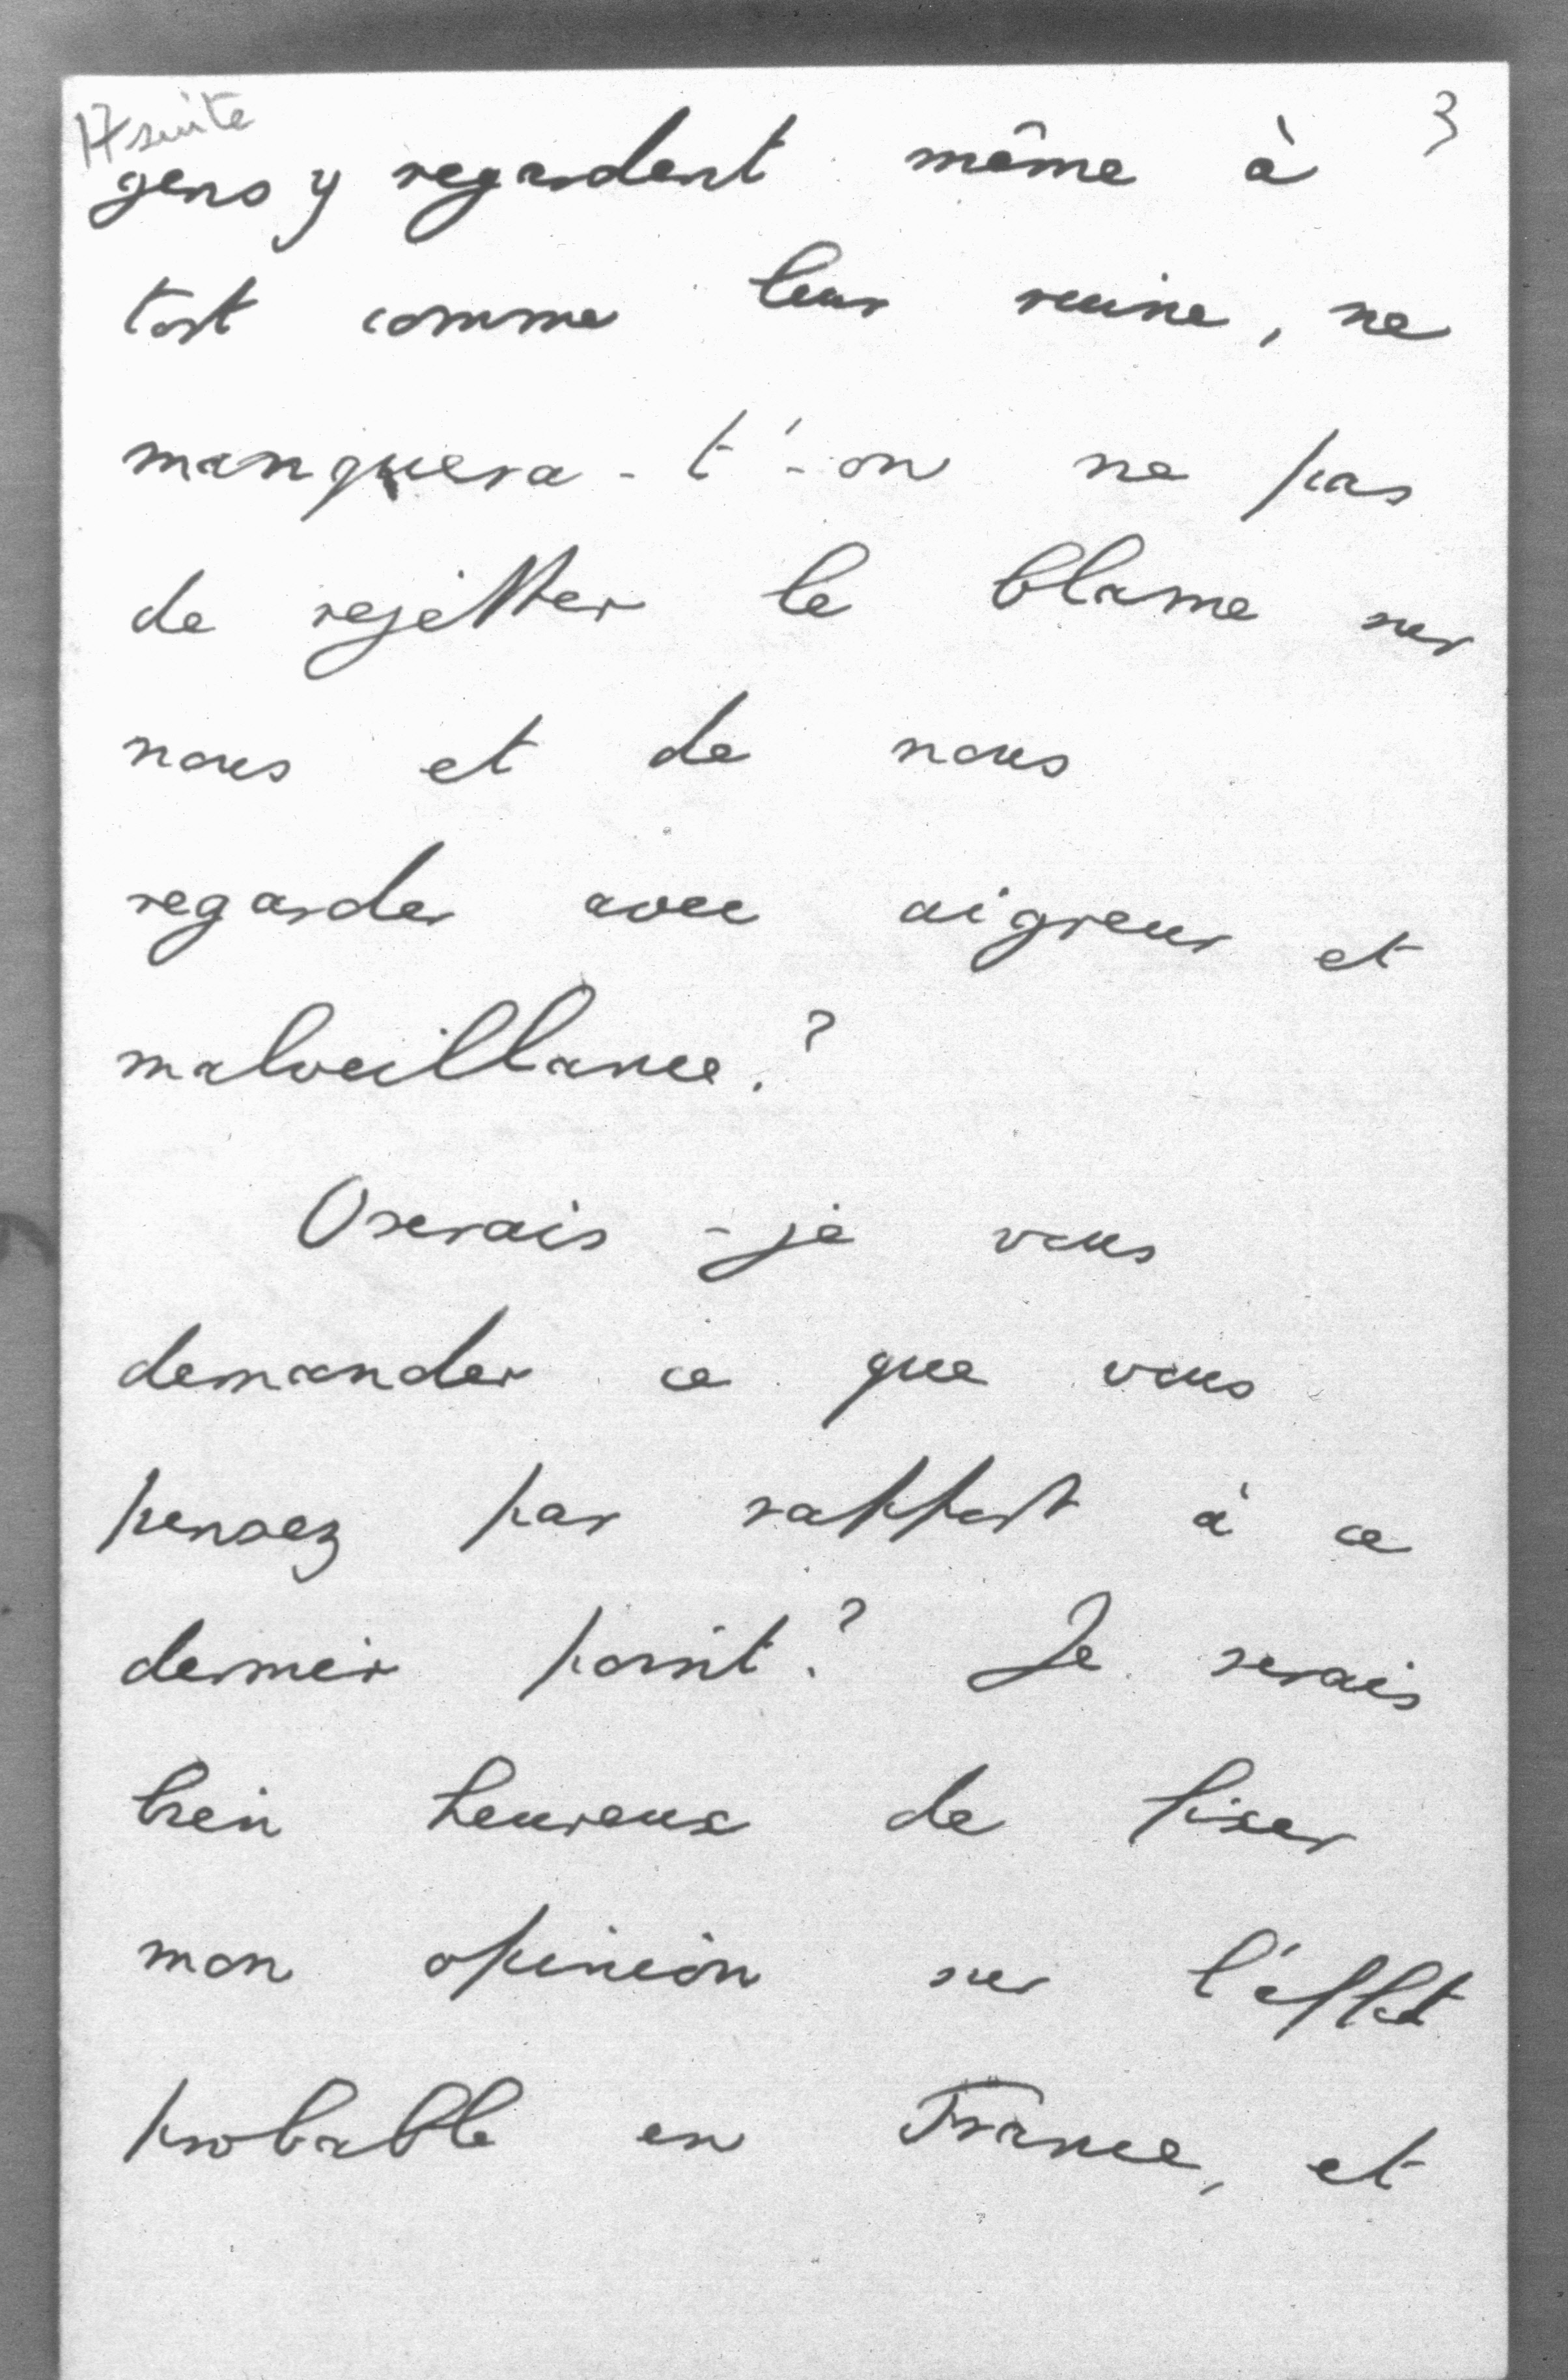 17 suite
3
gens y regardent même à
tort comme leur ruine, ne
manquera-t'-on ne pas
de rejetter le blame sur
nous et de nous
regarder avec aigreur et
malveillance?
Oserais-je vous
demander ce que vous
pensez par rapport à ce
dernier point? Je serais
bien heureux de fixer
mon opinion sur l'éffet
probable en France, et